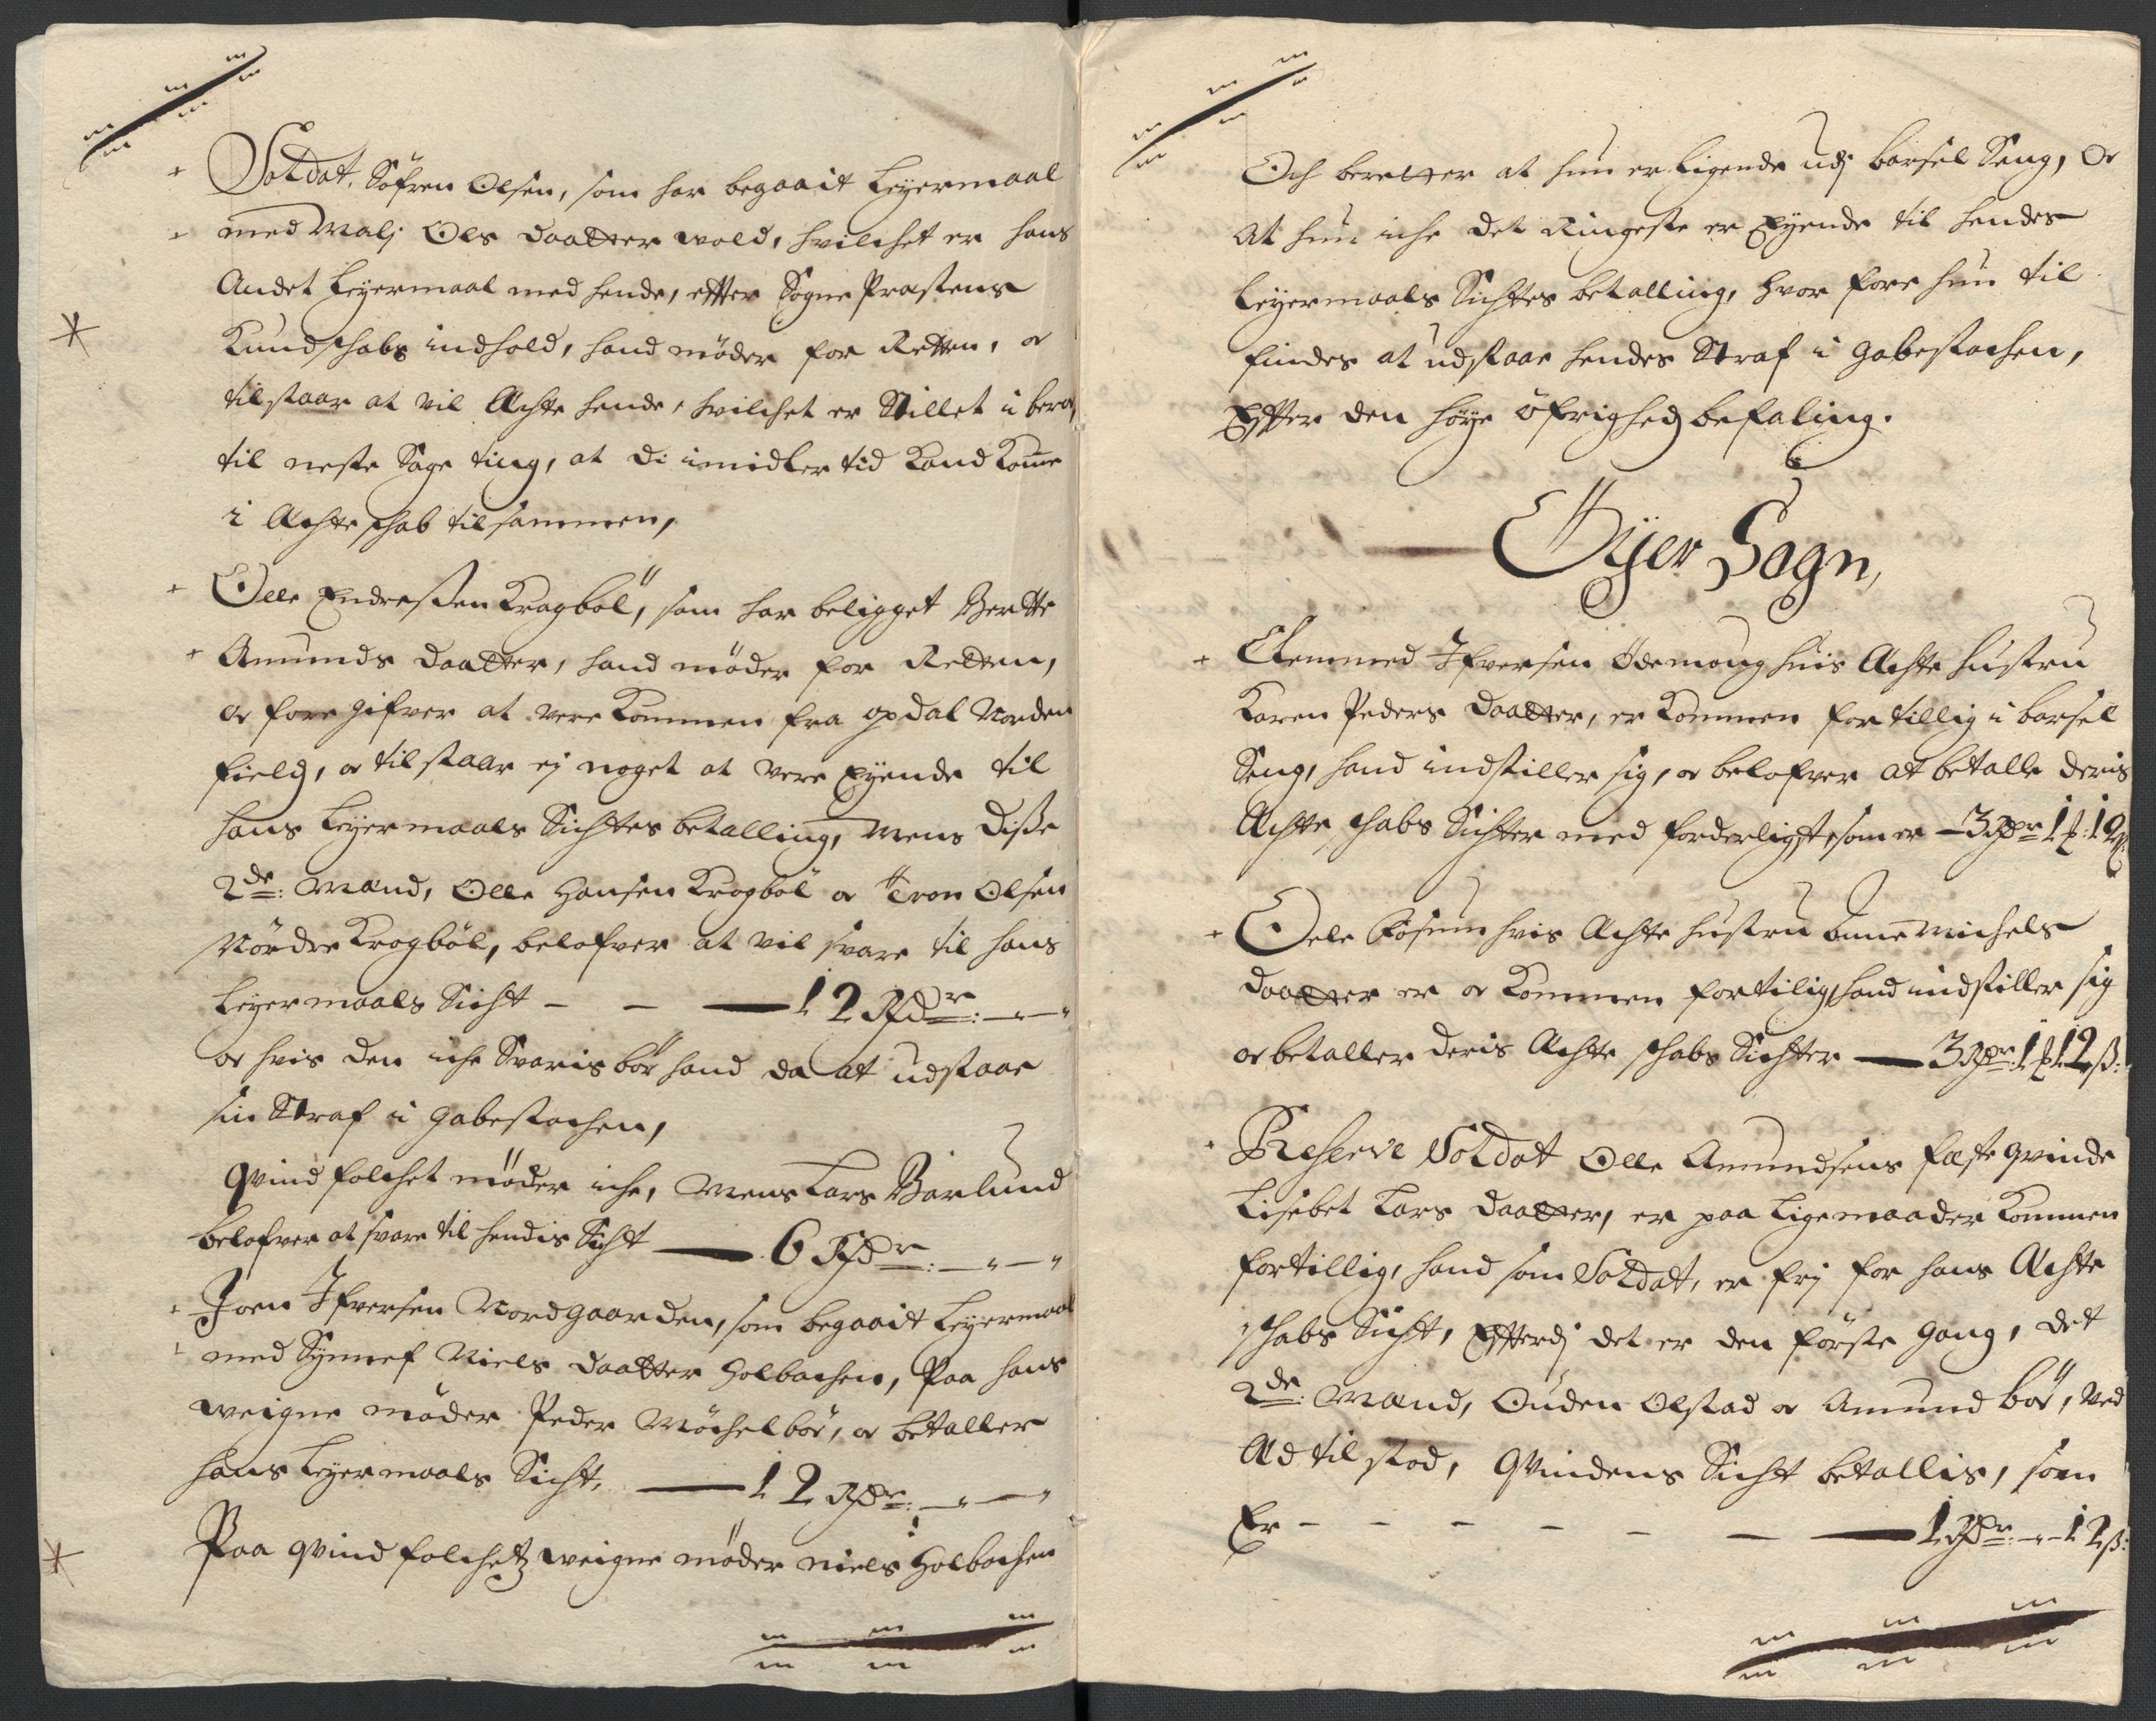 Soldat, Söfren Olsen, som har begaait Leyermaal
med Malj Ols daatter wold, hvilchet er hans
Andet Leyermaal med hende, effter Sogne Præstens
Kundschabs indhold, hand möder for Retten, or
tilstaar at vil Ächte hende, hvilchet er Stillet i beroe
til neste Sage ting, at di imidler tid Kand Kome
i Ächteschab tilsammen,
Olle Endressen Kragböl, som har beligget Berthe
Amunds daatter, hand möder for Retten,
or foregifver at vere Kommen fra opdal Norden
fields, or tilstaar ej noget at vere Eÿende til
hans Leyermaals Sichtes betalling, Mens diße
2de: Mænd, Olle Hansen Krogböl or Tron Olsen
Nördre Krogböl, belofver at vil svare til hans
Leyermaals Sicht - - — 12 Rdr: — " — "
or hvis den iche Svaris bör hand da at udstaae
sin Straf i gabestochen,
Qvind folchet möder iche, Mens Lars Bærlund
belofver at svare til hendis Sicht — 6 Rdr: — " — "
Joen Ifversen Nordgaarden, som begaait Leyermaal
med Synnef Niels daatter Holbachen, Paa hans
weigne möder Peder Möchelböe, or betaller
hans Leyermaals Sicht, — 12 Rdr: — " — "
Paa qvind folchetz weigne möder Niels Holbachen
Och beretter at hun er ligende udj barsel Seng, Or
At hun iche det Ringeste er Eÿende til hendes
Leyermaals Sichtes betalling, hvor fore hun til
findes at udstaae hendes Straf i gabestochen,
Effter den höye öfrigheds befaling.
Öÿer Sogn,
Clemmed Ifversen Ödemoug huis Ächte hustru
Karen Peders daatter, er Kommen for tillig i barsel
Seng, hand indstiller sig, or belofver at betalle deris
Ächteschabs Sichter med forderligste som er — 3 Rdr 1 ƪ: 12 ß
Oele Fösum hvis Ächte hustru Anne Michels
daatter er or Kommen fortilig, hand indstiller sig
or betaller deris Ächteschabs Sichter — 3 Rdr: 1 ƪ 12 ß:
Reserve Soldat Olle Amundsens fæste qvinde
Lisebet Lars daatter, er paa ligemaader Kommen
fortillig, hand som Soldat, er frj for hans Ächte
schabs Sicht, Effterdj det er den förste gang, det
2de: Mænd, Ouden Olstad or Amund böe, Ved
Æd tilstod, Qvindens Sicht betallis, som
Er - - - - - — — 1 Rdr: — " — 12 ß: